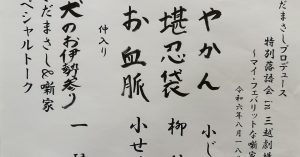 だまさしプロデュース
特別落語会 in 三越劇場
〜マイ・フェバリットな噺家
令和六年八月一八
やかん 小じ
堪忍袋 柳
お血脈 小せ
仲入り
犬のお伊勢参り 一
だまさし&噺家
ペシャルトーク